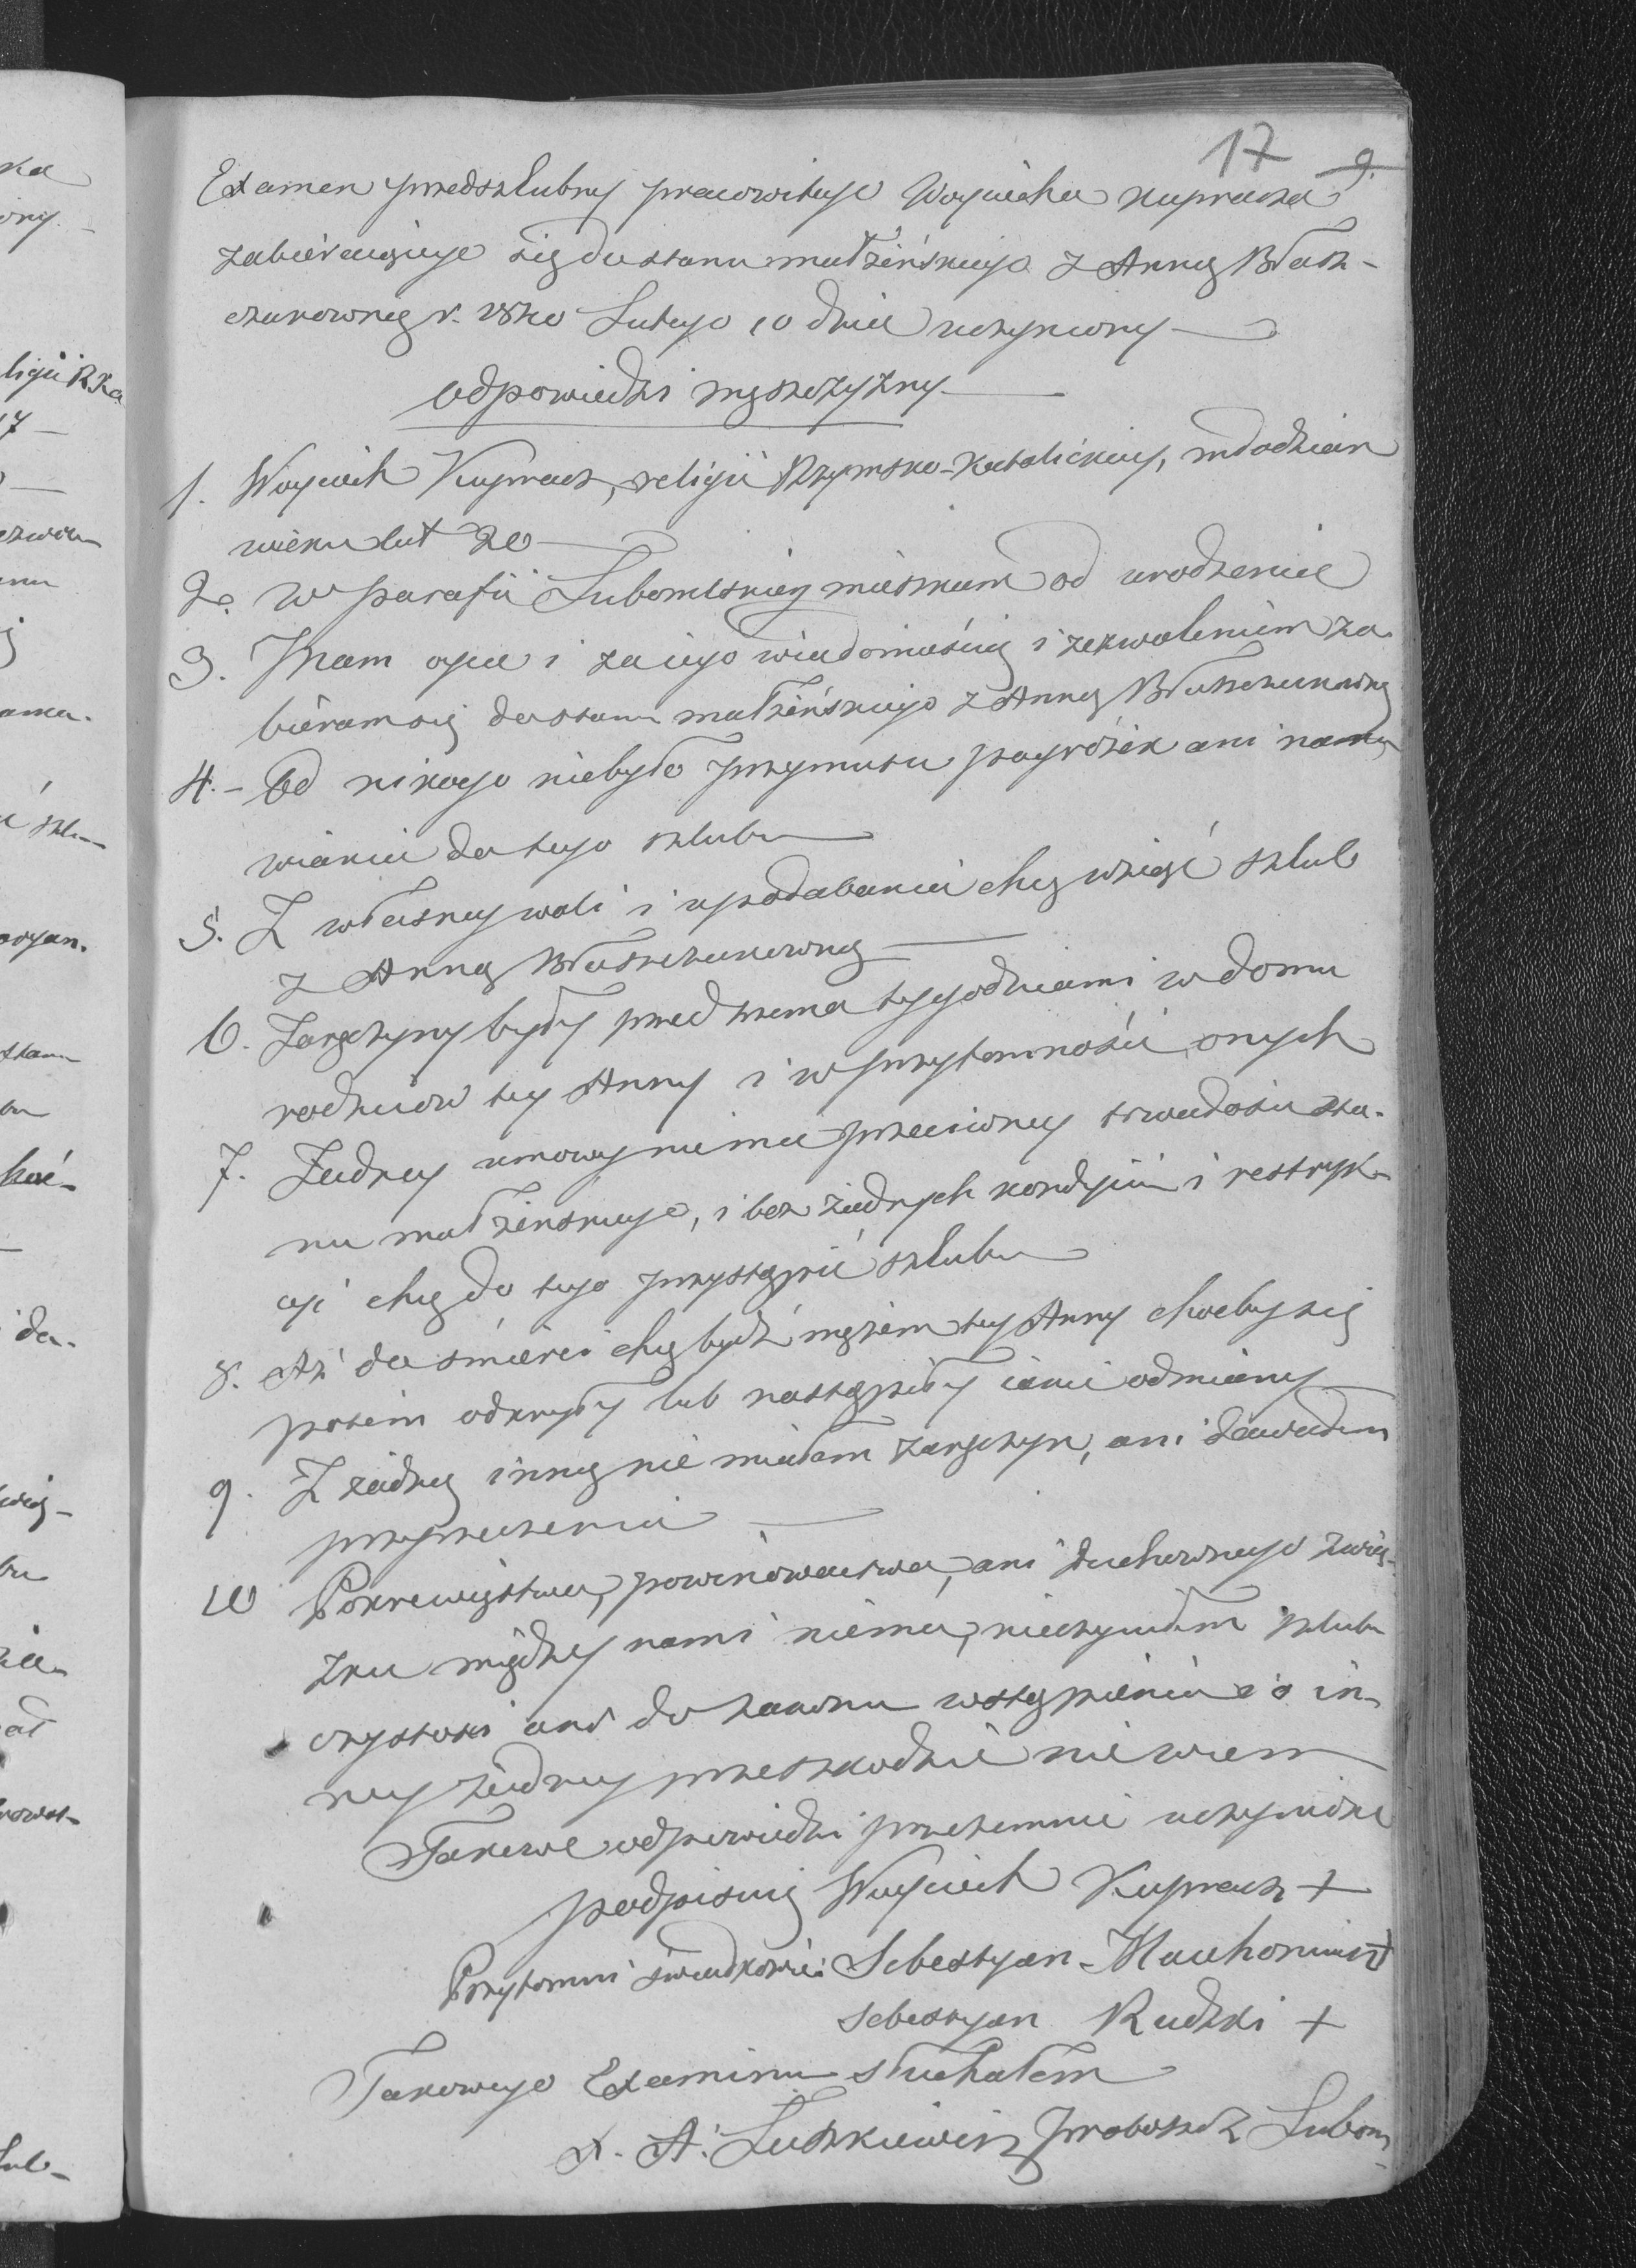 17 9.
Examen przedszlubny pracowitego Woyciecha Kupracza
zabieraiącego się do stanu małżeńskiego z Anną Błasz-
czukowną r. 1820 Lutego 10 dnia uczyniony
odpowiedzi męszczyzny
1. Woyciech Kupracz, religii Rzymsko-Katolickiey, młodzian
wieku lat 20
2. W parafii Lubomlskiey mieszkam od urodzenia
3. Mam oyca i za iego wiadomością i zezwoleniem za-
bieram się do stanu małżeńskiego z Anną Błaszczukowną
4. - Od nikogo niebyło przymusu pogróżek ani namą
wiania do tego szlubu
5. Z własney woli i upodobania chcę wziąść szlub
z Anną Błaszczukowną
6. Zaręczyny były przed trzema tygodniami w domu
rodziców tey Anny i w przytomności onych
7. Żadney umowy niema przeciwney trwałości sta-
nu małżeńskiego, i bez żadnych kondycii i restryk-
cyi chcę do tego przystąpić szlubu
8. Aż do śmierci chcę bydź mężem tey Anny choćby się
potem odkryły lub nastąpiły iakie odmiany
9. Z żadną inną nie miałem zaręczyn, ani dawałem
przyrzeczenia
10 Pokrewięstwa, powinowactwa, ani duchownego zwią-
zku między nami niema, nieczyniłem szlubu
czystości ani do zakonu wstąpienia i o in-
ney żadney przeszkodzie nie wiem
Takowe odpowiedzi przezemnie uczynione
podpisuię Woyciech Kupracz +
Przytomni świadkowie: Sebestyan
Sebestyan Rudzki +
Takowego Examinu słuchałem
X. A. Łuszkiewicz proboszcz Lubom-